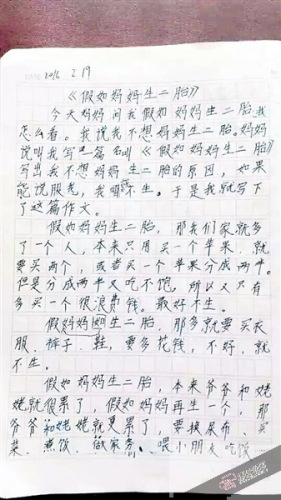 2016 2.19
《假如妈妈生二胎》
今天妈妈问我假如妈妈生二胎我
怎么看。我说我不想妈妈生二胎。妈妈
说叫我写一篇名叫《假如妈妈生二胎》
写出我不想妈妈生二胎的原因,如果
能说服老,我不生。于是我就写下
了这篇作文。
假如妈妈生二胎,那我们家就多
了一个人,本来只用买一个苹果,就
要买两个,或者买一个苹果分成两半。
但是分成两半又吃不饱,所以又只有
多买一个很浪费钱。最好不生。
假妈妈如生二胎,那多就要买衣
服、裤子、鞋,要多花钱,不好,就
不生。
假如妈妈生二胎,本来爷爷和姥
姥就很累了,假如妈妈再生一个,那
爷爷和姥姥就更累了,要换尿布、买
菜、煮饭、做家务、喂小朋友吃饭……